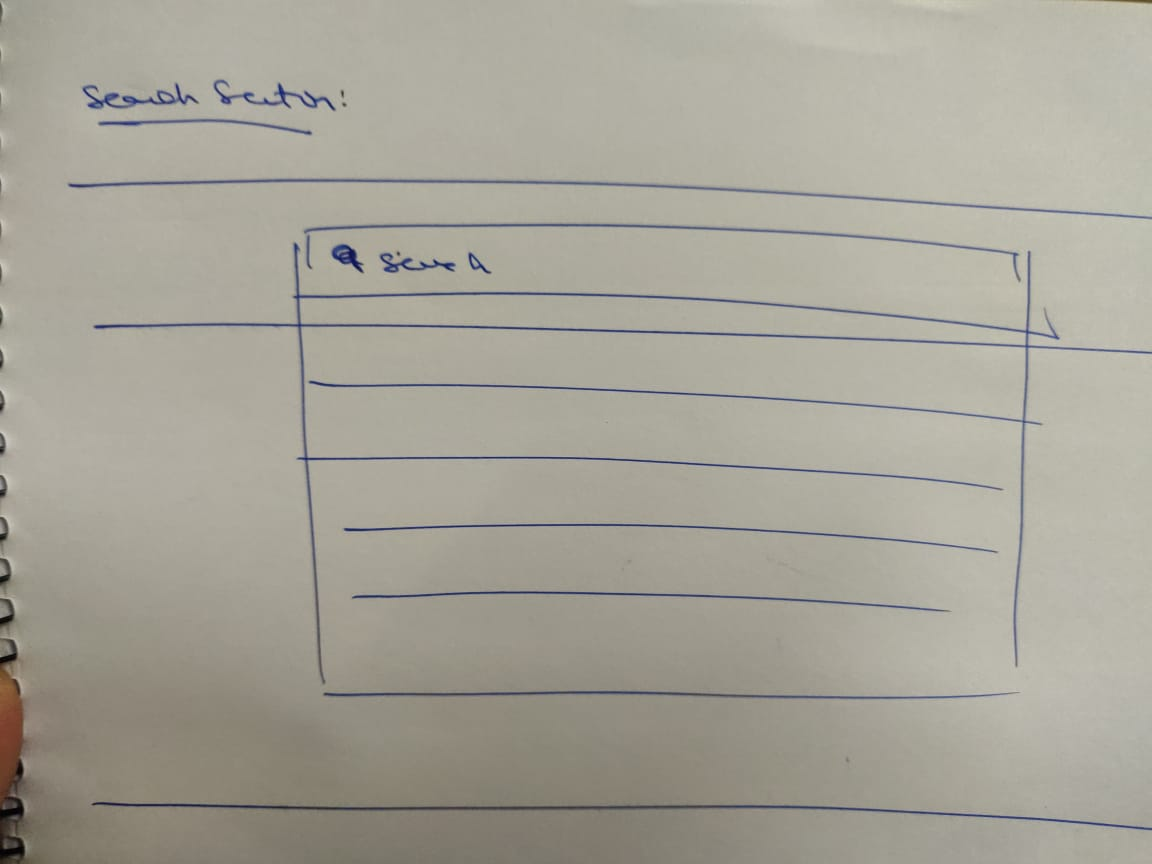 Search Section:
Search